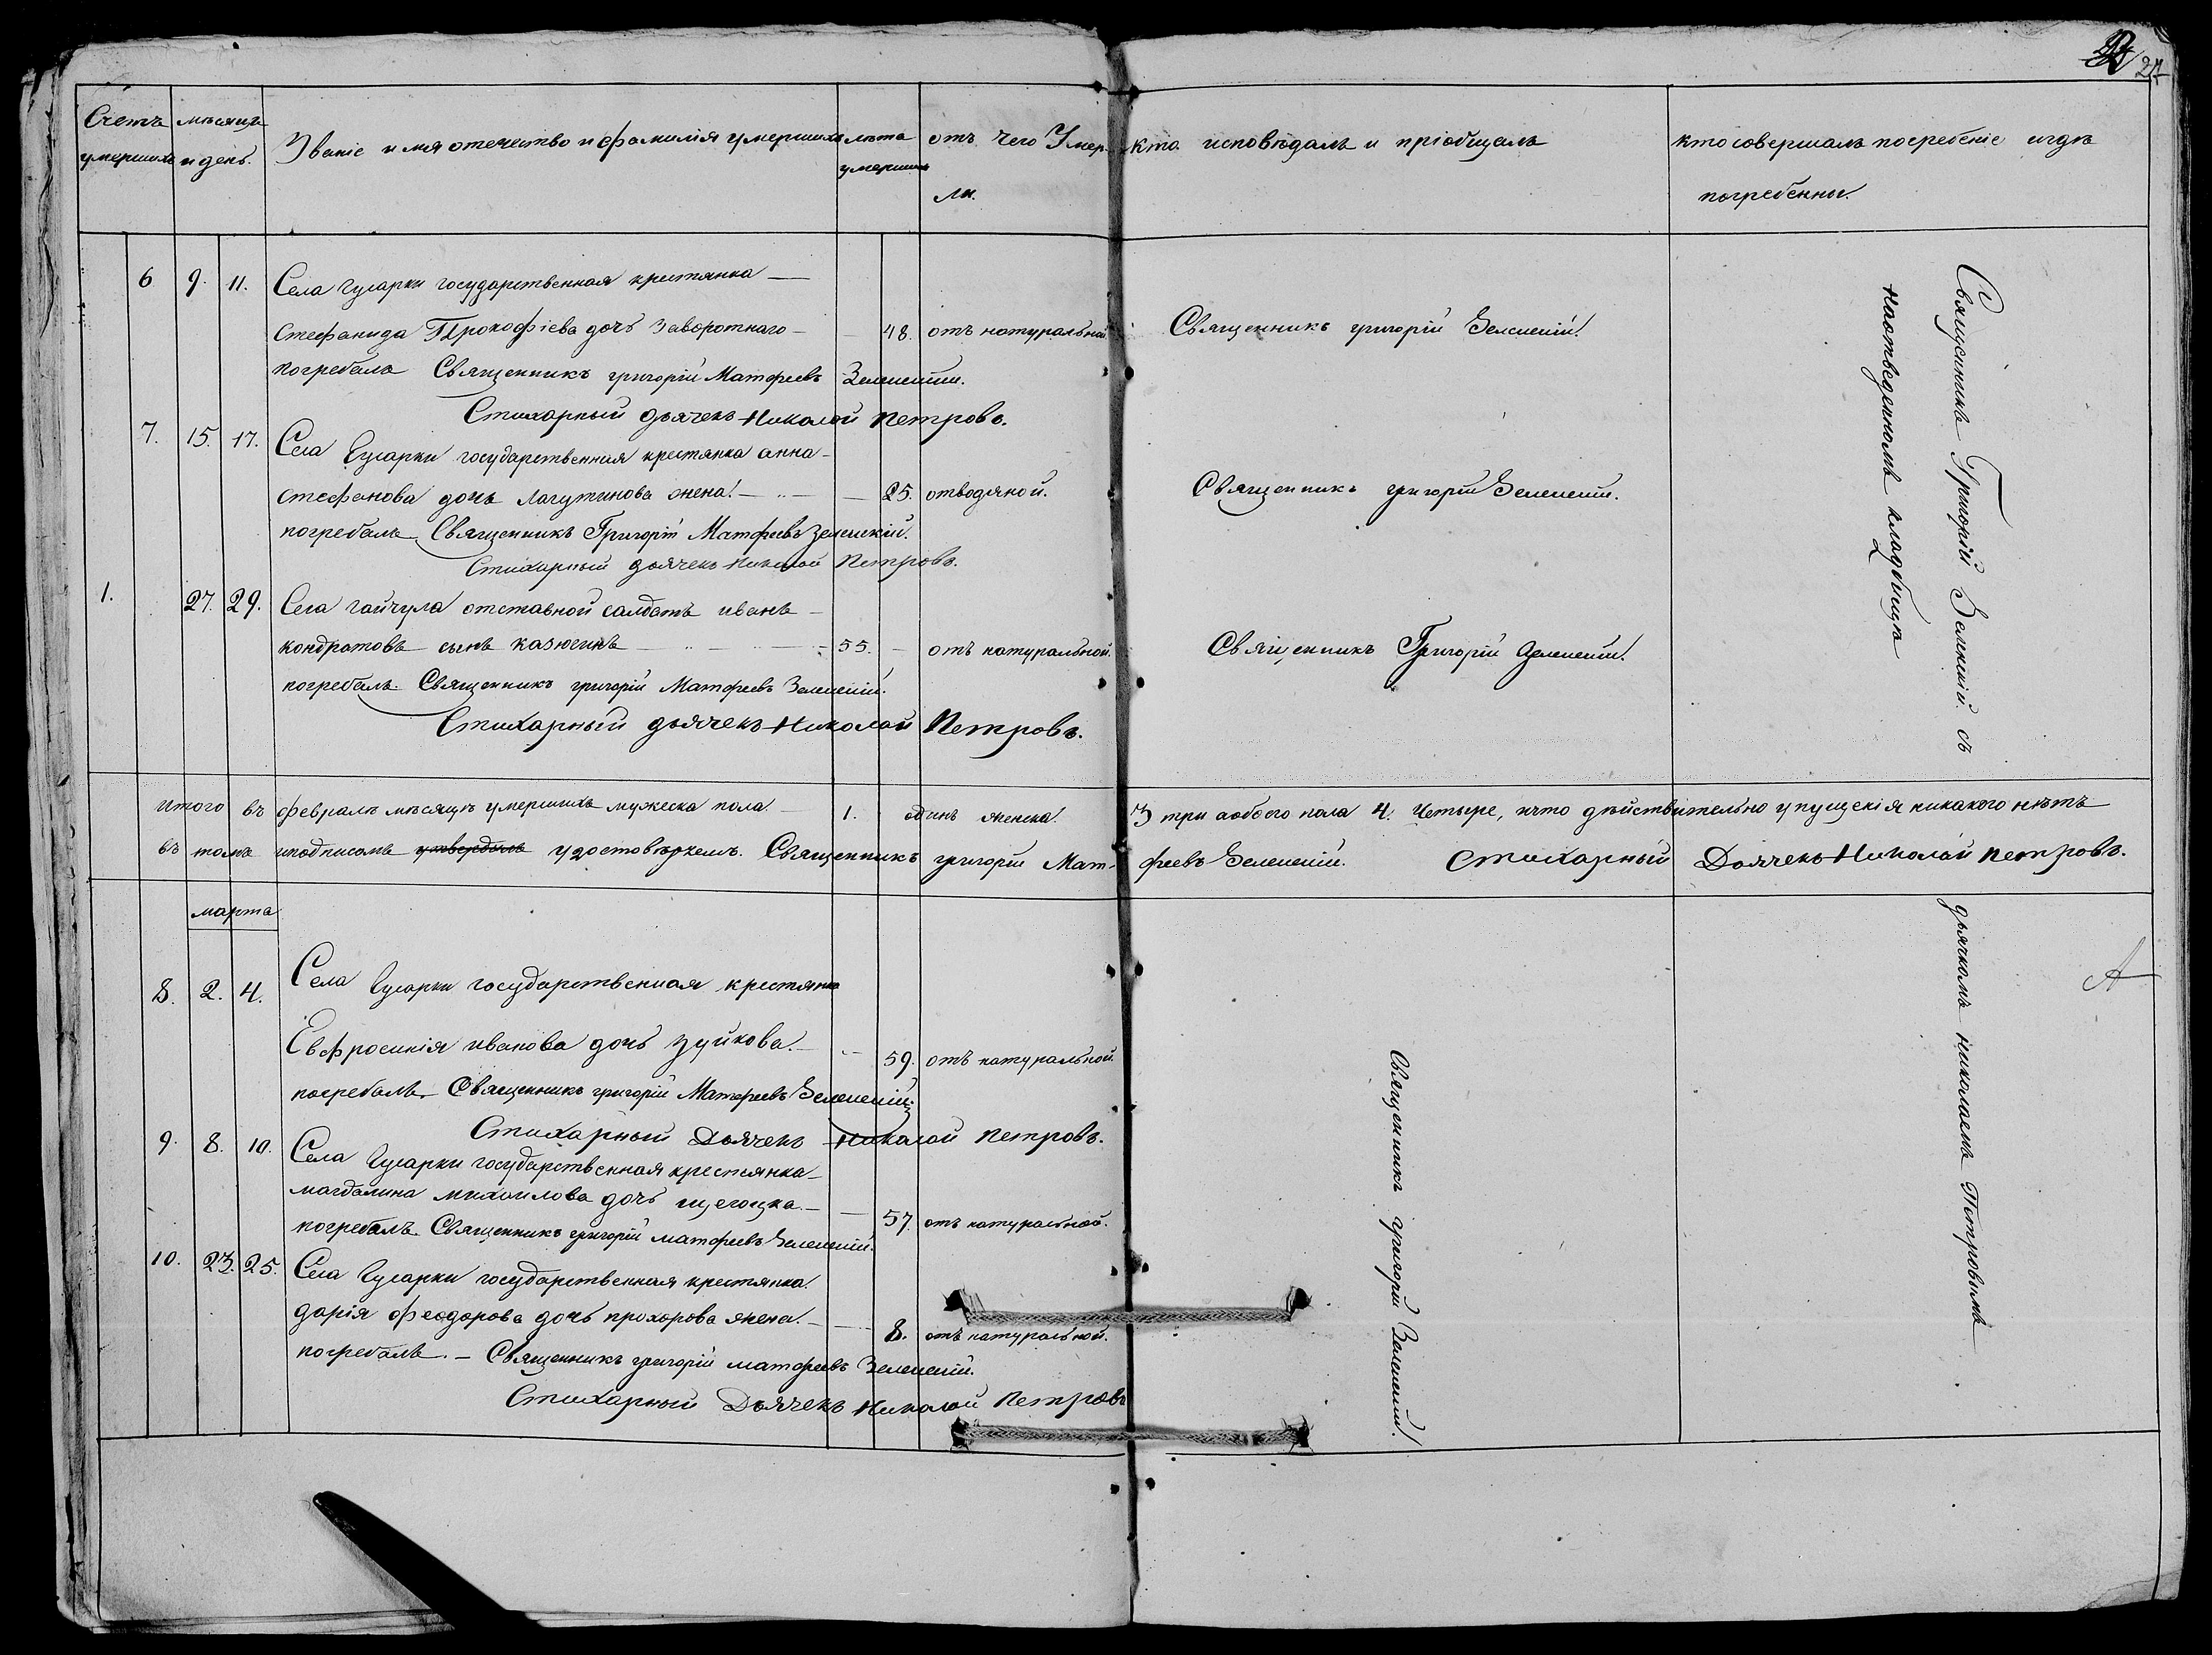 21
Счетъ умершихъ
мѣсяцъ и день.
Званіе имя отечество и фамилія умершихъ
лѣта умершихъ
отъ чего Умерли.
кто исповѣдалъ и пріобщалъ
кто совершалъ погребеніе и гдѣ погребенны.
6 9. 11. Села Гусарки государственная крестянка —
Стефанида Прокофіева дочь Заворотнаго — — 48. отъ натуральной Священникъ григорій Зеленскій.
погребалъ Священникъ григорій Матфеевъ Зеленскій.
Стихарный дьячекъ Николай Петровъ.
7. 15. 17. Села Гусарки государственная крестянка анна —
стефанова дочь Лагутинова жена. — — 25. отводяной. Священникъ григорій Зеленскій.
погребалъ Священникъ Григорій Матфеевъ Зеленскій.
Стихарный дьячекъ Николай Петровъ.
1. 27. 29. Села гайчула отставной салдатъ иванъ —
кондратовъ сынъ казюсинъ — 55. — отъ натуральной. Священникъ Григорій Зеленскій.
погребалъ Священникъ григорій Матфеевъ Зеленскій.
Стихарный дьячекъ Николай Петровъ.
Священникъ Григорій Зеленскій съ
наотведенномъ кладбищѣ
итого въ февралѣ мѣсяцѣ умершихъ мужеска пола — 1. одинъ женска. 3 три аобоего пола 4. Четыре, ичто дѣйствительно упущенія никакого нѣтъ
въ томъ иподписомъ утвердилъ удостовѣряемъ. Священникъ григорій Матфеевъ Зеленскій. Стихарный Дьячекъ Николай Петровъ.
марта
8. 2. 4. Села Гусарки государственная крестянка
Евфросинія иванова дочь зуйкова. — — 59. отъ натуральной.
погребалъ Священникъ григорій Матфеевъ Зеленскій.
Стихарный Дьячекъ Николай Петровъ.
9. 8. 10. Села Гусарки государственная крестянка
магдалина михаилова дочь — — 57. отъ натуральной.
погребалъ Священникъ григорій матфеевъ Зеленскій.
10. 23. 25. Села Гусарки государственная крестянка
дарія феодорова дочь прохорова жена. — — 8. отъ натуральной.
погребалъ — Священникъ григорій матфеевъ Зеленскій.
Стихарный Дьячекъ Николай Петровъ
Священникъ григорій Зеленскій.
дьячкомъ николаемъ Петровымъ